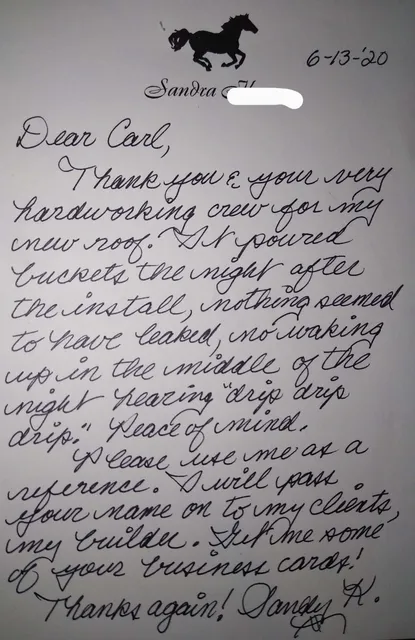 6-13-'20
Sandra
Dear Carl,
Thank you & your very
hardworking crew for my
new roof. It poured
buckets the night after
the install, nothing seemed
to have leaked, no waking
up in the middle of the
night hearing "drip drip
drip." Peace of mind.
Please use me as a
reference. I will pass
your name on to my clients,
my builder. Get me some
of your business cards!
Thanks again! Sandy K.